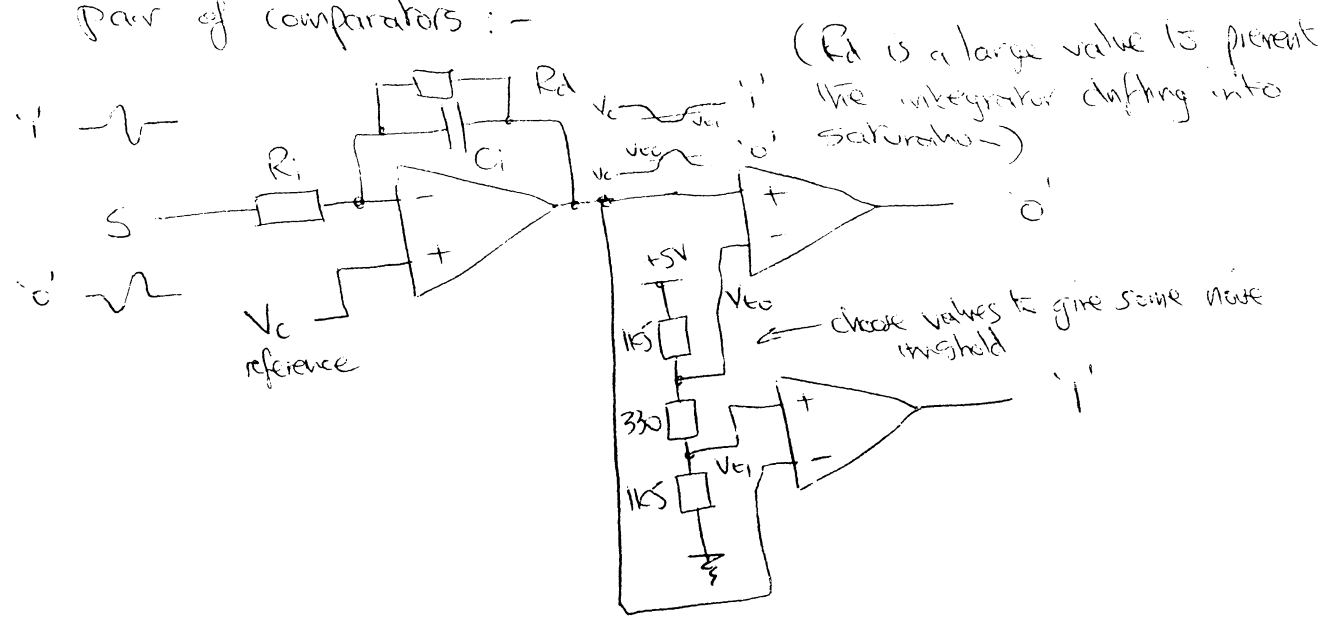 pair of comparators :-
(Rd is a large value to prevent
the integrator drifting into
saturation)
'1'
Rd
Vc Vt1 '1'
Vc Vt0 '0'
Ci
Ri
S
-
+
'0'
Vc
reference
+
-
'0'
+5V
Vt0
1k5
← choose values to give some noise
threshold
330
+
-
'1'
Vt1
1k5